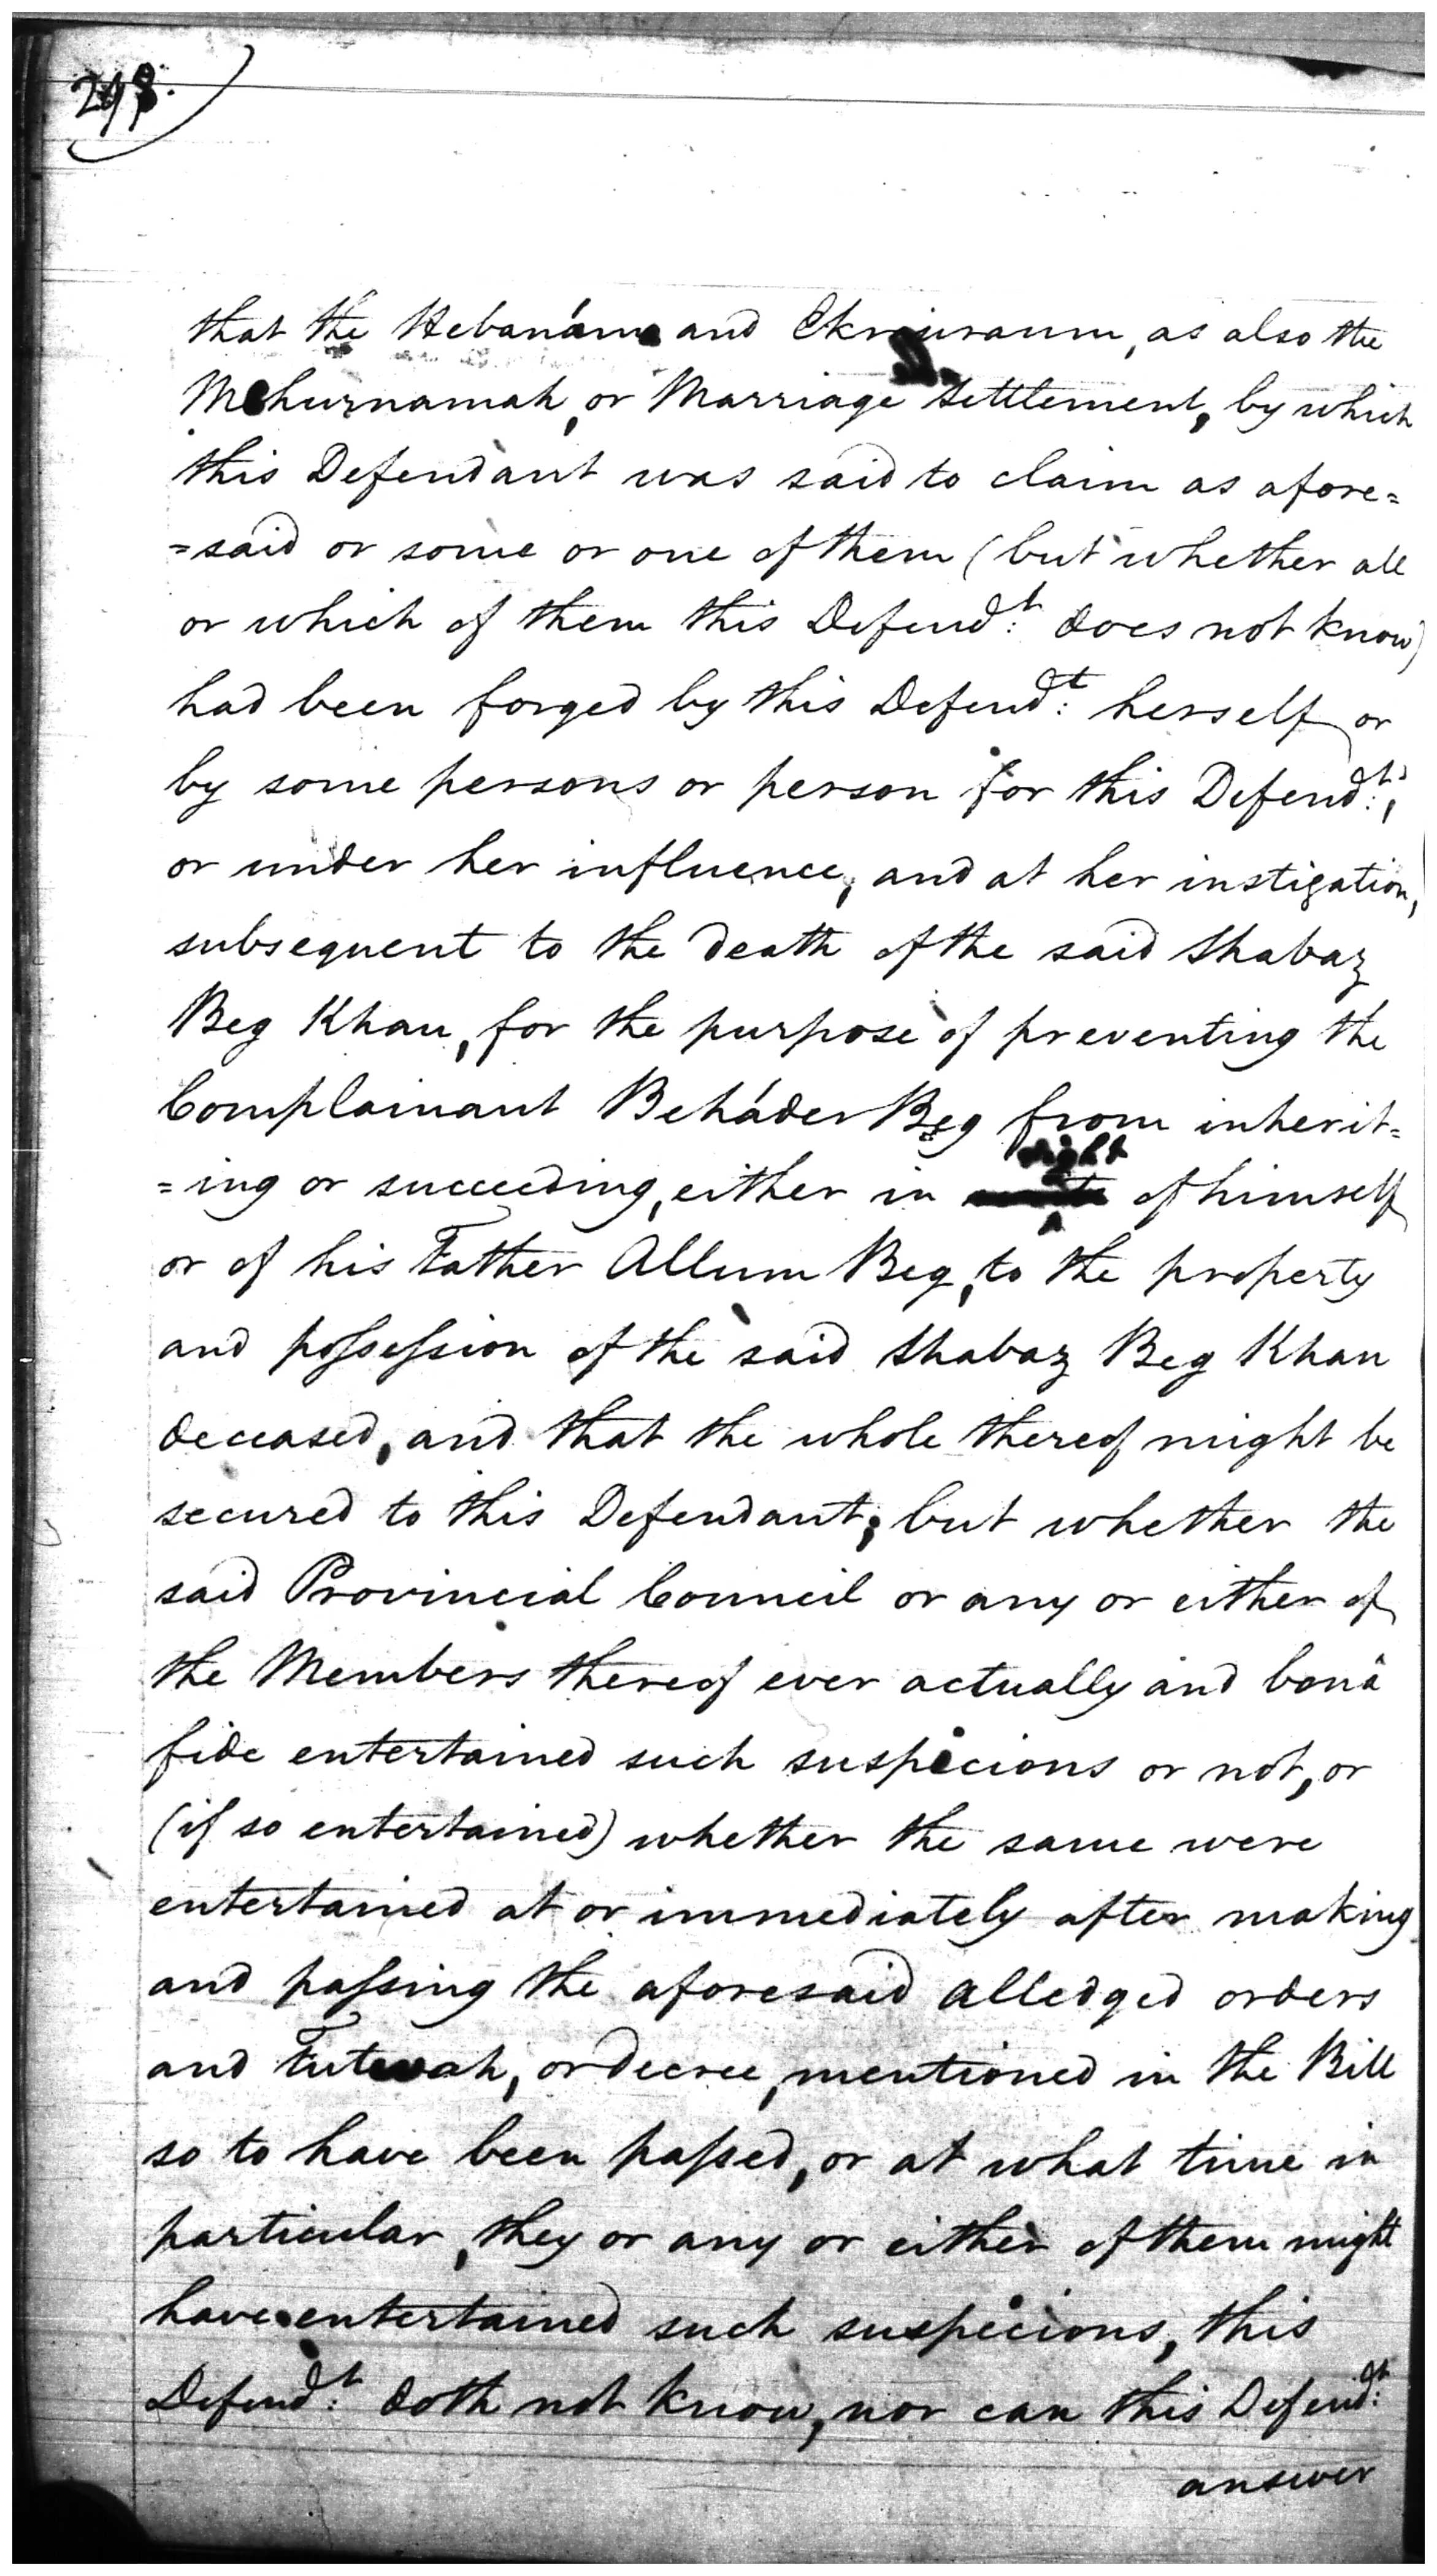 that the Hebanáma and Ekraurnaum, as also the
Mehurnamah, or Marriage Settlement, by which
this Defendant was said to claim as afore=
=said or some or one of them (but whether all
or which of them this Defend:t does not know)
had been forged by this Defend:t herself or
by some persons or person for this Defend:t,
or under her influence, and at her instigation,
subsequent to the death of the said Shabaz
Beg Khan, for the purpose of preventing the
Complainant Beháder Beg from inherit=
=ing or succeeding, either in right of himself
or of his Father Allum Beg, to the property
and possession of the said Shabaz Beg Khan
deceased, and that the whole thereof might be
secured to this Defendant; but whether the
said Provincial Council or any or either of
the Members thereof ever actually and bonâ
fide entertained such suspicions or not, or
(if so entertained) whether the same were
entertained at or immediately after making
and passing the aforesaid alledged orders
and Futwah, or decree, mentioned in the Bill
so to have been passed, or at what time in
particular, they or any or either of them might
have entertained such suspicions, this
Defend:t doth not know, nor can this Defend:t
answer